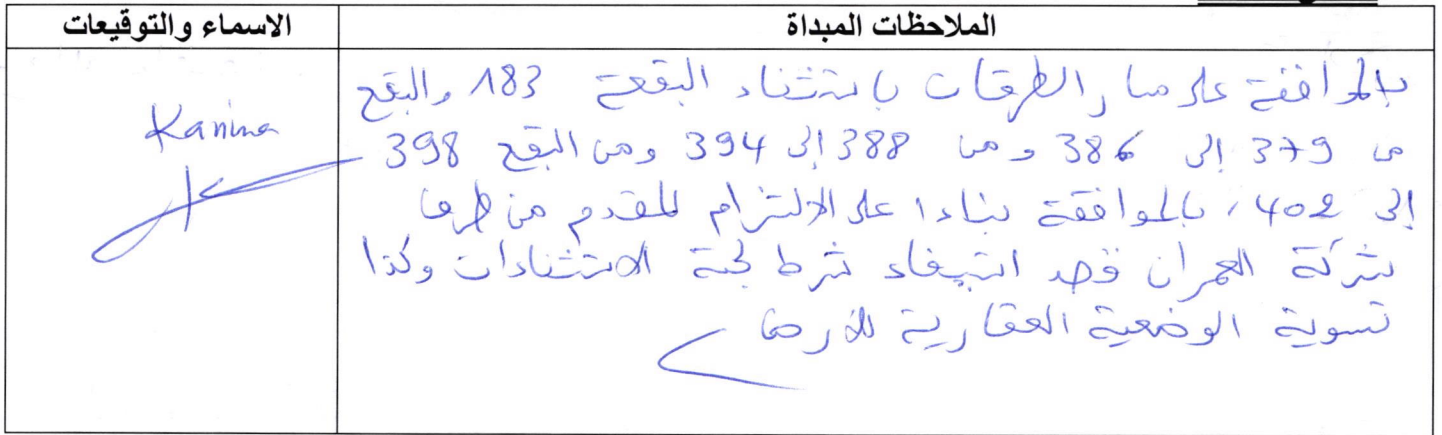 الملاحظات المبداة
الاسماء والتوقيعات
بالموافقة على مسار الطرقات باستثناء البقعة 183 والبقع
من 379 إلى 386 ومن 388 إلى 394 ومن البقع 398
إلى 402، بالموافقة بناءا على الالتزام المقدم من طرف
شركة العمران قصد استيفاء شرط لجنة الاستثناءات وكذا
تسوية الوضعية العقارية للأرض
Kanima